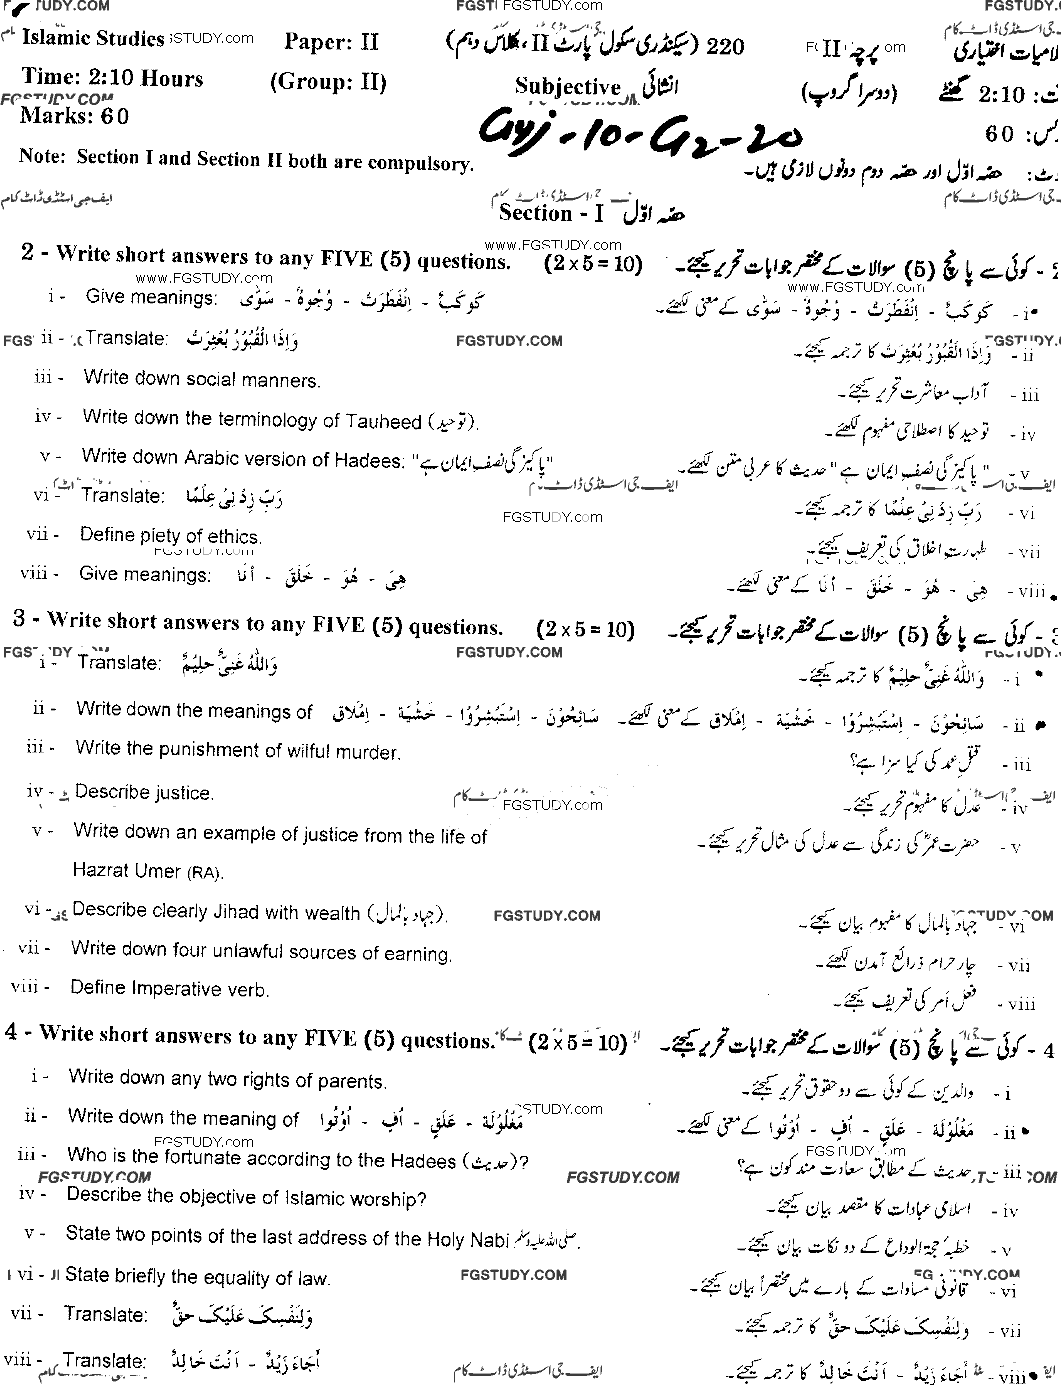 FGSTUDY.COM
Islamic Studies Paper: II 220 (سیکنڈری سکول پارٹ II ، کلاس دہم) پرچہ II اسلامیات اختیاری
Time: 2:10 Hours (Group: II) Subjective انشائی (دوسرا گروپ) 2:10 گھنٹے
Marks: 60 60
Guj-10-G2-20
Note: Section I and Section II both are compulsory. حصّہ اوّل اور حصّہ دوم دونوں لازمی ہیں۔
ایف جی اسٹڈی ڈاٹ کام
Section - I حصّہ اوّل
www.FGSTUDY.com
2 - Write short answers to any FIVE (5) questions. (2 x 5 = 10) 2 - کوئی سے پانچ (5) سوالات کے مختصر جوابات تحریر کیجئے۔
www.FGSTUDY.com www.FGSTUDY.com
i - Give meanings: كَوَكَبٌ - اِنْفَطَرَتْ - وُجُوْهٌ - سَوّٰى i - كَوَكَبٌ - اِنْفَطَرَتْ - وُجُوْهٌ - سَوّٰى کے معنی لکھئے۔
ii - Translate: وَاِذَا الْقُبُوْرُ بُعْثِرَتْ FGSTUDY.COM ii - وَاِذَا الْقُبُوْرُ بُعْثِرَتْ کا ترجمہ کیجئے۔
iii - Write down social manners. iii - آداب معاشرت تحریر کیجئے۔
iv - Write down the terminology of Tauheed (توحید). iv - توحید کا اصطلاحی مفہوم لکھئے۔
v - Write down Arabic version of Hadees: "پاکیزگی نصف ایمان ہے" v - "پاکیزگی نصف ایمان ہے" حدیث کا عربی متن لکھئے۔
vi - Translate: رَبِّ زِدْنِيْ عِلْمًا vi - رَبِّ زِدْنِيْ عِلْمًا کا ترجمہ کیجئے۔
FGSTUDY.com
vii - Define piety of ethics. vii - طہارتِ اخلاق کی تعریف کیجئے۔
viii - Give meanings: هِيَ - هُوَ - خَلَقَ - اَنَا viii - هِيَ - هُوَ - خَلَقَ - اَنَا کے معنی لکھئے۔
3 - Write short answers to any FIVE (5) questions. (2 x 5 = 10) 3 - کوئی سے پانچ (5) سوالات کے مختصر جوابات تحریر کیجئے۔
FGSTUDY.COM
i - Translate: وَاللّٰهُ غَنِيٌّ حَلِيْمٌ i - وَاللّٰهُ غَنِيٌّ حَلِيْمٌ کا ترجمہ کیجئے۔
ii - Write down the meanings of سَائِحُوْنَ - اِسْتَبْشِرُوْا - خَشْيَة - اِمْلَاق ii - سَائِحُوْنَ - اِسْتَبْشِرُوْا - خَشْيَة - اِمْلَاق کے معنی لکھئے۔
iii - Write the punishment of wilful murder. iii - قتلِ عمد کی کیا سزا ہے؟
iv - Describe justice. iv - عدل کا مفہوم تحریر کیجئے۔
FGSTUDY.com
v - Write down an example of justice from the life of v - حضرت عمرؓ کی زندگی سے عدل کی مثال تحریر کیجئے۔
Hazrat Umer (RA).
vi - Describe clearly Jihad with wealth (جہاد بالمال). FGSTUDY.COM vi - جہاد بالمال کا مفہوم بیان کیجئے۔
vii - Write down four unlawful sources of earning. vii - چار حرام ذرائع آمدن لکھئے۔
viii - Define Imperative verb. viii - فعل اَمر کی تعریف کیجئے۔
4 - Write short answers to any FIVE (5) questions. (2 x 5 = 10) 4 - کوئی سے پانچ (5) سوالات کے مختصر جوابات تحریر کیجئے۔
i - Write down any two rights of parents. i - والدین کے کوئی سے دو حقوق تحریر کیجئے۔
ii - Write down the meaning of مَغْلُوْلَة - عَلَقٍ - اُفٍ - اُوْتُوا ii - مَغْلُوْلَة - عَلَقٍ - اُفٍ - اُوْتُوا کے معنی لکھئے۔
FGSTUDY.com
iii - Who is the fortunate according to the Hadees (حدیث)? iii - حدیث کے مطابق سعادت مند کون ہے؟
FGSTUDY.COM FGSTUDY.COM
iv - Describe the objective of Islamic worship? iv - اسلامی عبادات کا مقصد بیان کیجئے۔
v - State two points of the last address of the Holy Nabi صلی اللہ علیہ وسلم. v - خطبہ حجۃ الوداع کے دو نکات بیان کیجئے۔
vi - State briefly the equality of law. FGSTUDY.COM vi - قانونی مساوات کے بارے میں مختصراً بیان کیجئے۔
vii - Translate: وَلِنَفْسِکَ عَلَيْکَ حَقٌّ vii - وَلِنَفْسِکَ عَلَيْکَ حَقٌّ کا ترجمہ کیجئے۔
viii - Translate: أَجَاءَ زَيْدٌ - اَنْتَ خَالِدٌ viii - أَجَاءَ زَيْدٌ - اَنْتَ خَالِدٌ کا ترجمہ کیجئے۔
ایف جی اسٹڈی ڈاٹ کام